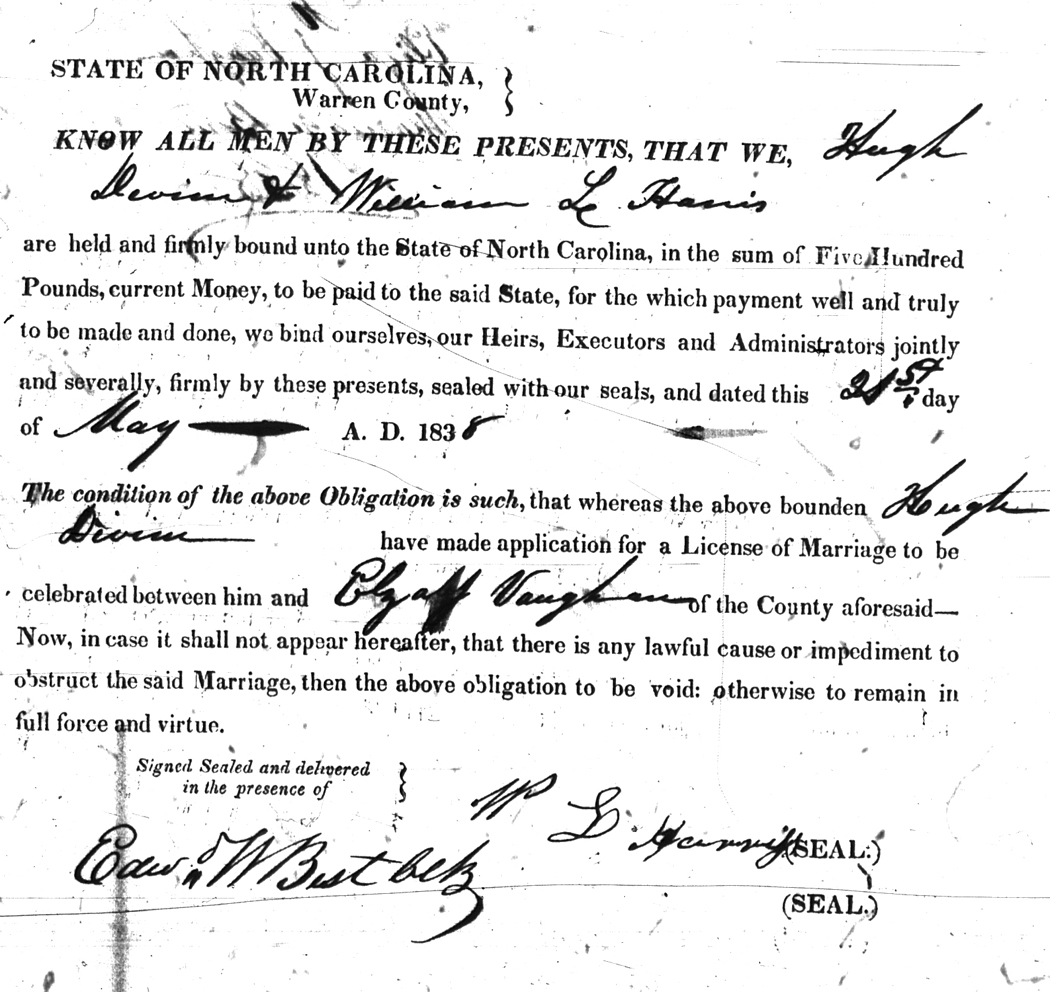 STATE OF NORTH CAROLINA,
Warren County,
KNOW ALL MEN BY THESE PRESENTS, THAT WE, Hugh
Devinn & William L Harris
are held and firmly bound unto the State of North Carolina, in the sum of Five Hundred
Pounds, current Money, to be paid to the said State, for the which payment well and truly
to be made and done, we bind ourselves, our Heirs, Executors and Administrators jointly
and severally, firmly by these presents, sealed with our seals, and dated this 21st day
of May A. D. 1838
The condition of the above Obligation is such, that whereas the above bounden Hugh
Divinn have made application for a License of Marriage to be
celebrated between him and Vaughan of the County aforesaid—
Now, in case it shall not appear hereafter, that there is any lawful cause or impediment to
obstruct the said Marriage, then the above obligation to be void: otherwise to remain in
full force and virtue.
Signed Sealed and delivered
in the presence of
W L Harriss (SEAL.)
Edwd W Best Clk
(SEAL.)